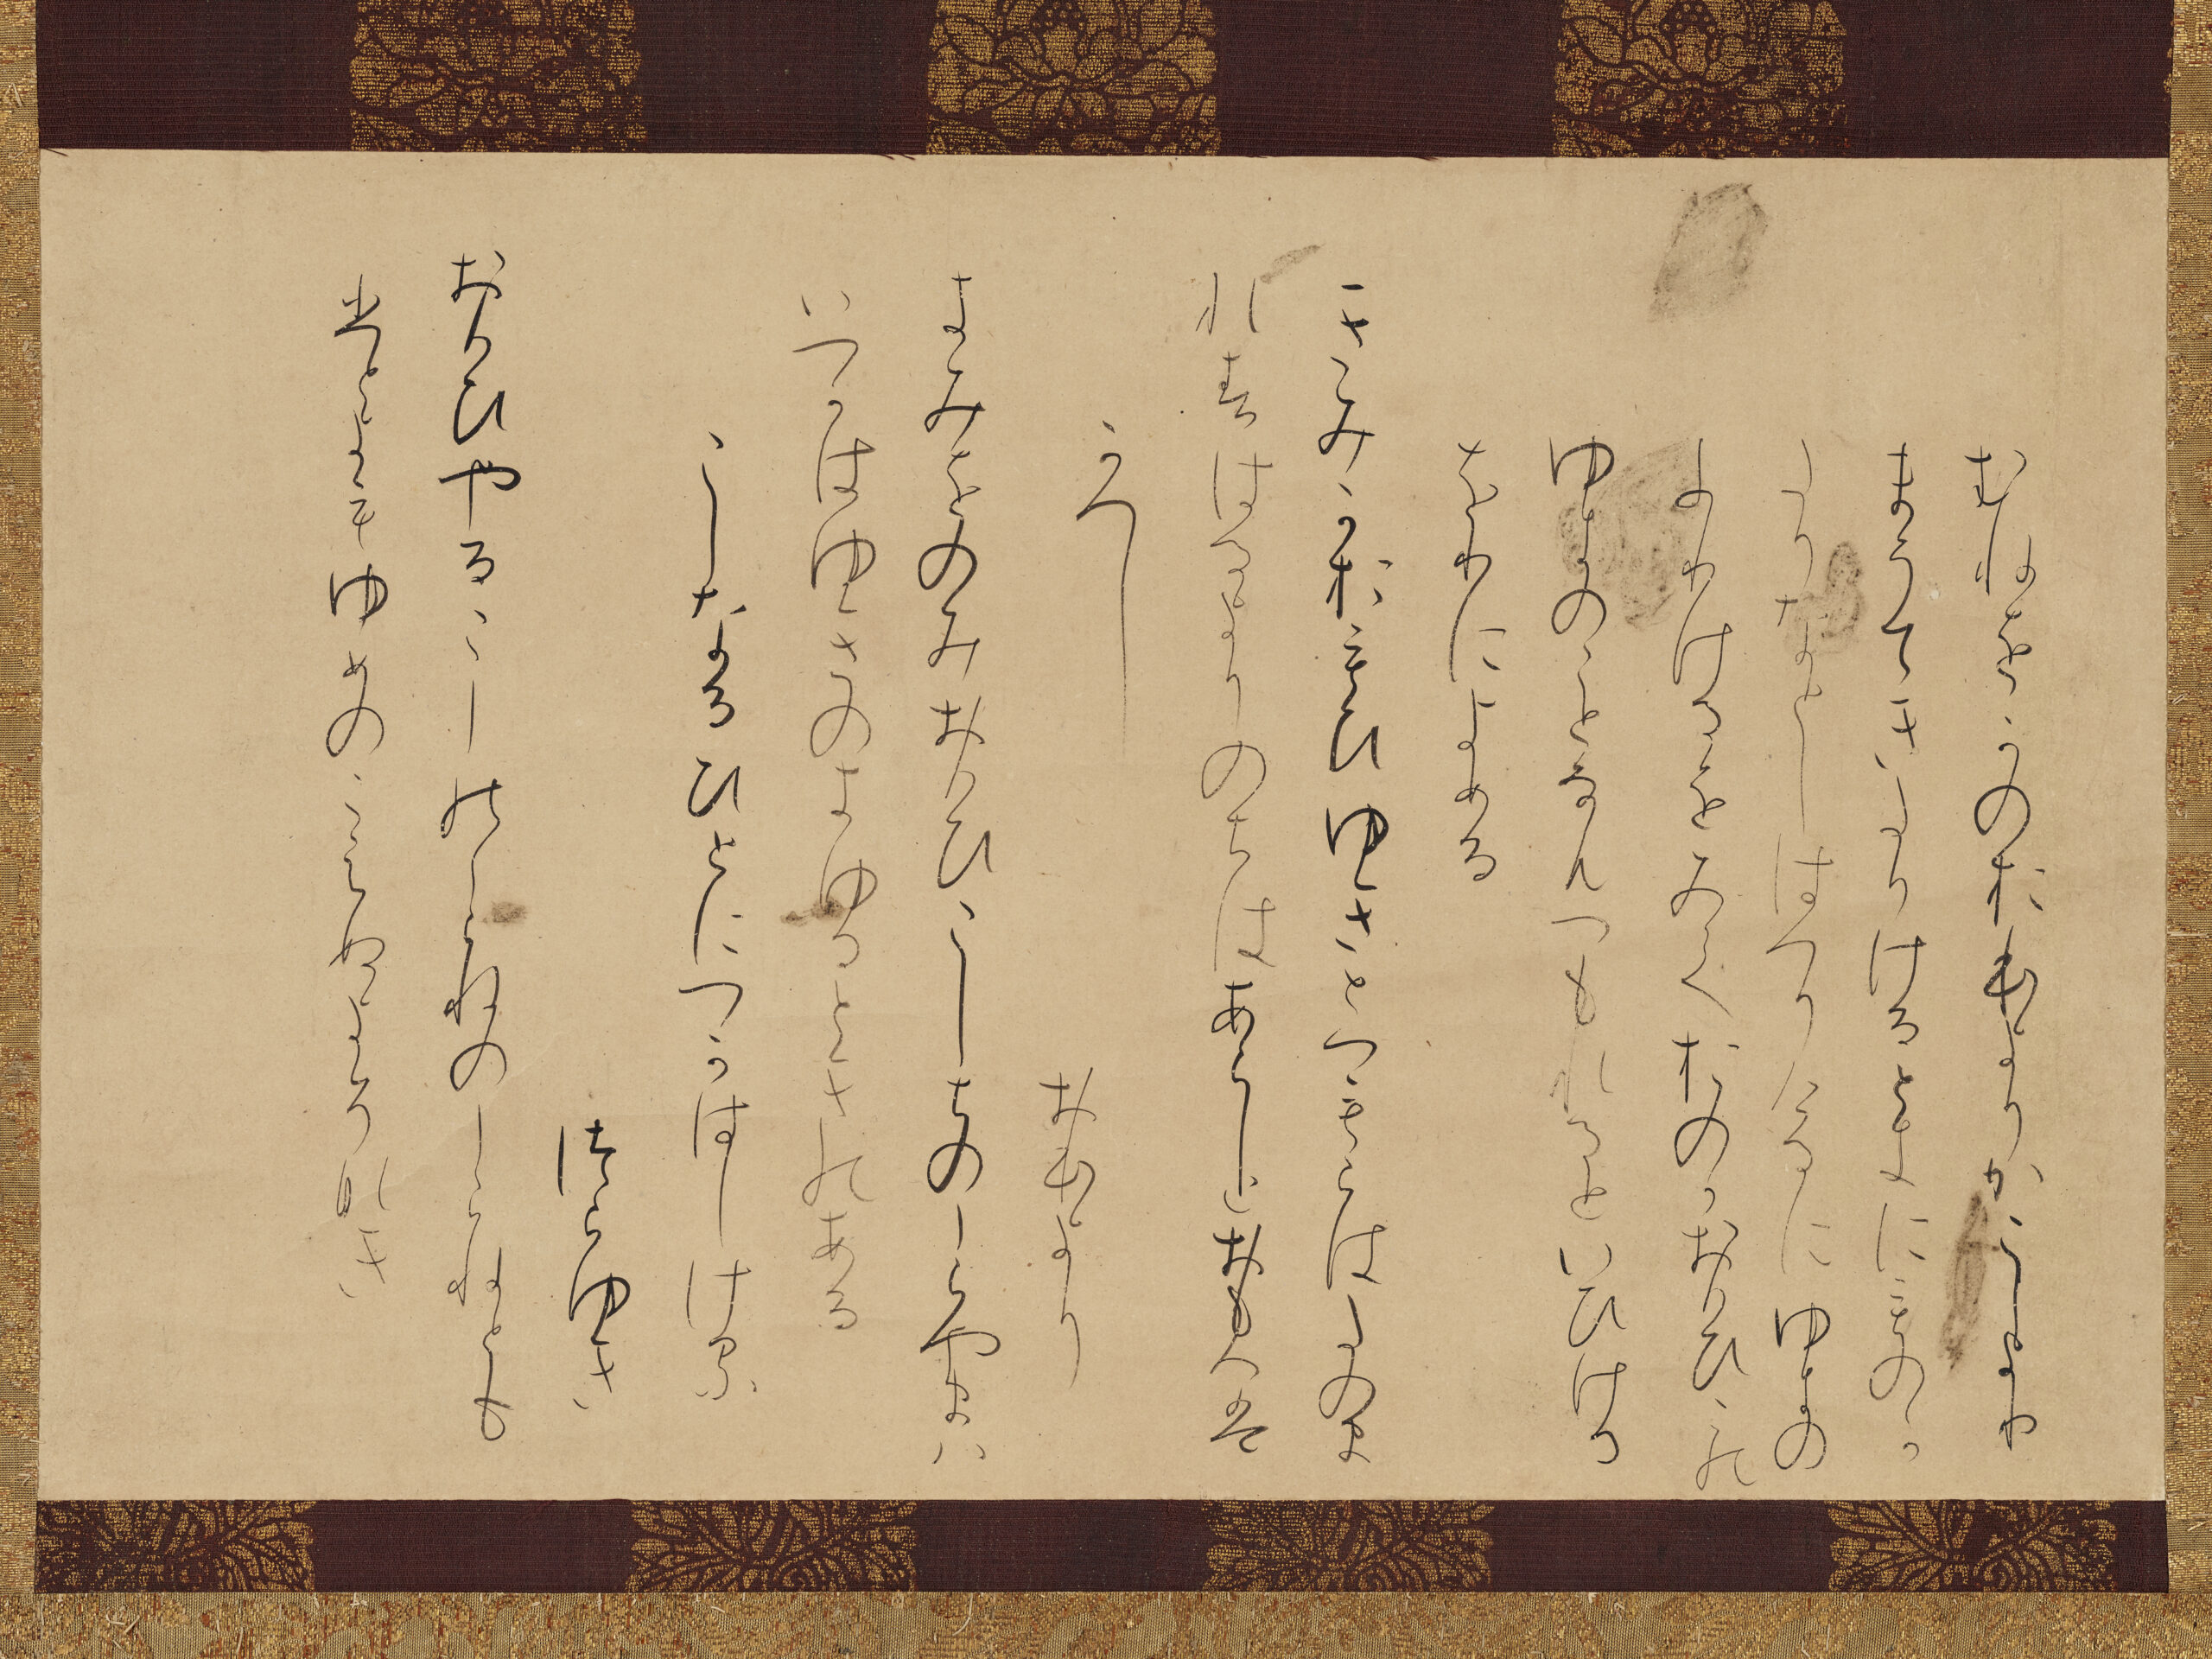 むねをかのおほよりかこしより
まうてきたりけるときにものか
たりなとしはへりけるにゆきの
ふりけるをみておのかおもひこの
ゆきのことなんつもれるといひける
をりによめる
きみかおもひゆきとつもらはたのま
れすはるよりのちはあらしとおもへは
かへし
おほより
きみをのみおもひこしちのしらやまは
いつかはゆきのきゆるときのある
こしなるひとにつかはしける
つらゆき
おもひやるこしのしらねのしらねとも
ひとよもゆめにこえぬよそなき